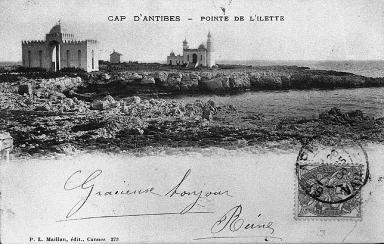 CAP D'ANTIBES – POINTE DE L'ILETTE
Gracieuse bonjour
P. L. Maillan, édit., Cannes 273